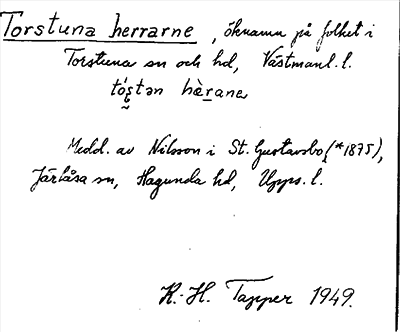 Torstuna herrarne, öknamn på folket i
Torstuna sn och hd, Västmanl. l.
tó̀s̨tən hὲ̱rane
Medd. av Nilsson i St. Gustavsbo, (*1875),
Järlåsa sn, Hagunda hd, Upps. l.
K.-H. Tapper 1949.